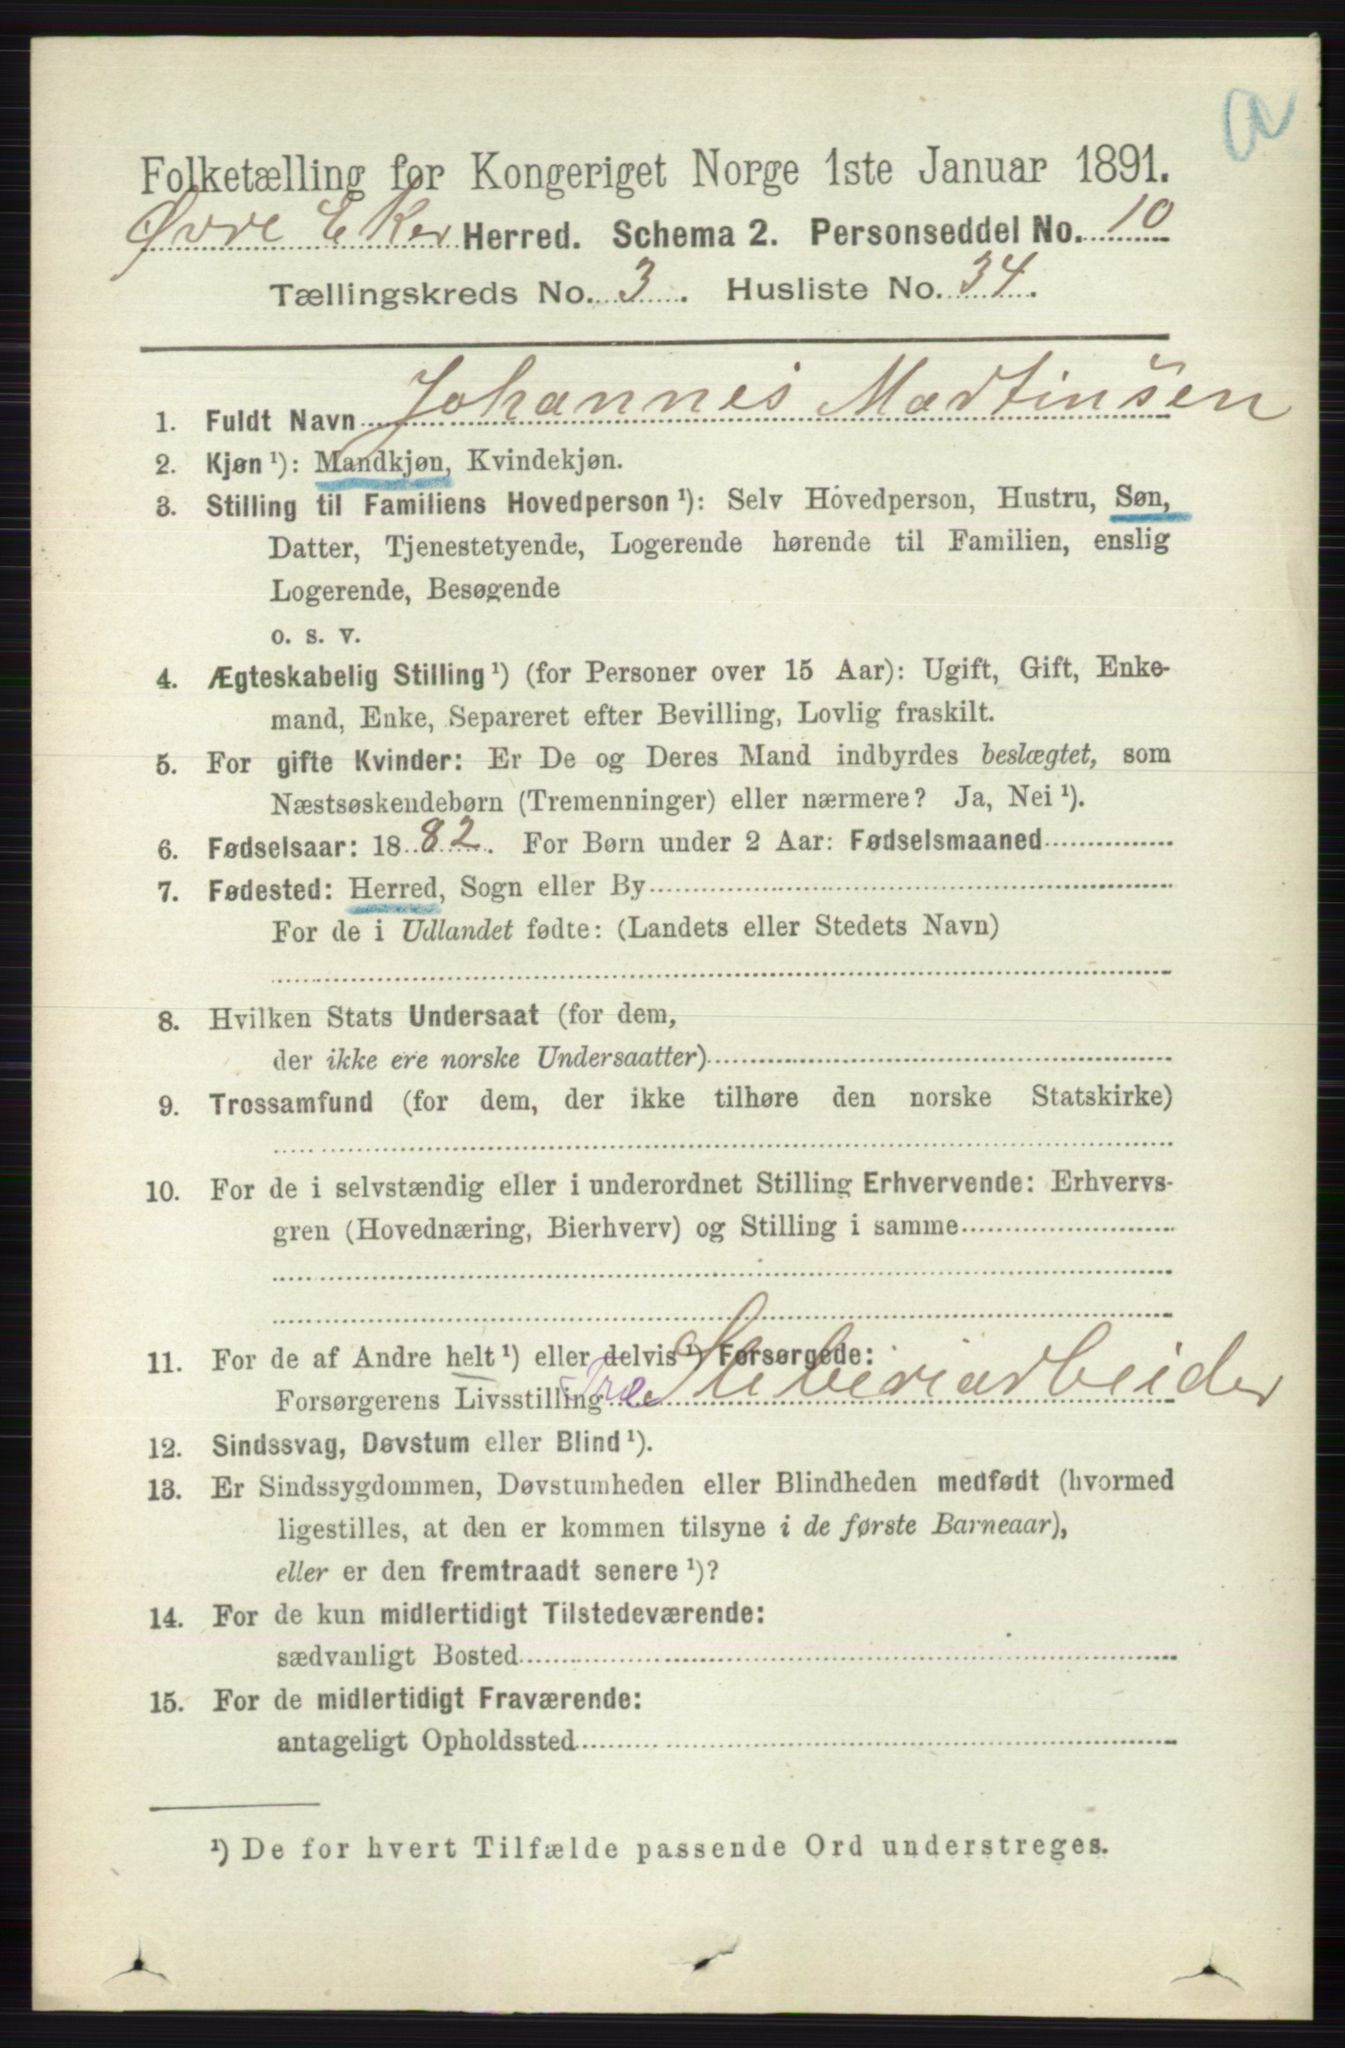 a
Folketælling for Kongeriget Norge 1ste Januar 1891.
Øvre Eker Herred. Schema 2. Personseddel No. 10
Tællingskreds No. 3. Husliste No. 34.
1. Fuldt Navn Johannes Martinsen
2. Kjøn ¹): Mandkjøn, Kvindekjøn.
3. Stilling til Familiens Hovedperson ¹): Selv Hovedperson, Hustru, Søn,
Datter, Tjenestetyende, Logerende hørende til Familien, enslig
Logerende, Besøgende
o. s. v.
4. Ægteskabelig Stilling ¹) (for Personer over 15 Aar): Ugift, Gift, Enke-
mand, Enke, Separeret efter Bevilling, Lovlig fraskilt.
5. For gifte Kvinder: Er De og Deres Mand indbyrdes beslægtet, som
Næstsøskendebørn (Tremenninger) eller nærmere? Ja, Nei ¹).
6. Fødselsaar: 1882. For Børn under 2 Aar: Fødselsmaaned
7. Fødested: Herred, Sogn eller By
For de i Udlandet fødte: (Landets eller Stedets Navn)
8. Hvilken Stats Undersaat (for dem,
der ikke ere norske Undersaatter)
9. Trossamfund (for dem, der ikke tilhøre den norske Statskirke)
10. For de i selvstændig eller i underordnet Stilling Erhvervende: Erhvervs-
gren (Hovednæring, Bierhverv) og Stilling i samme
11. For de af Andre helt ¹) eller delvis ¹) Forsørgede:
Forsørgerens Livsstilling Træ Sliberiarbeider
12. Sindssvag, Døvstum eller Blind ¹).
13. Er Sindssygdommen, Døvstumheden eller Blindheden medfødt (hvormed
ligestilles, at den er kommen tilsyne i de første Barneaar),
eller er den fremtraadt senere ¹)?
14. For de kun midlertidigt Tilstedeværende:
sædvanligt Bosted
15. For de midlertidigt Fraværende:
antageligt Opholdssted
¹) De for hvert Tilfælde passende Ord understreges.